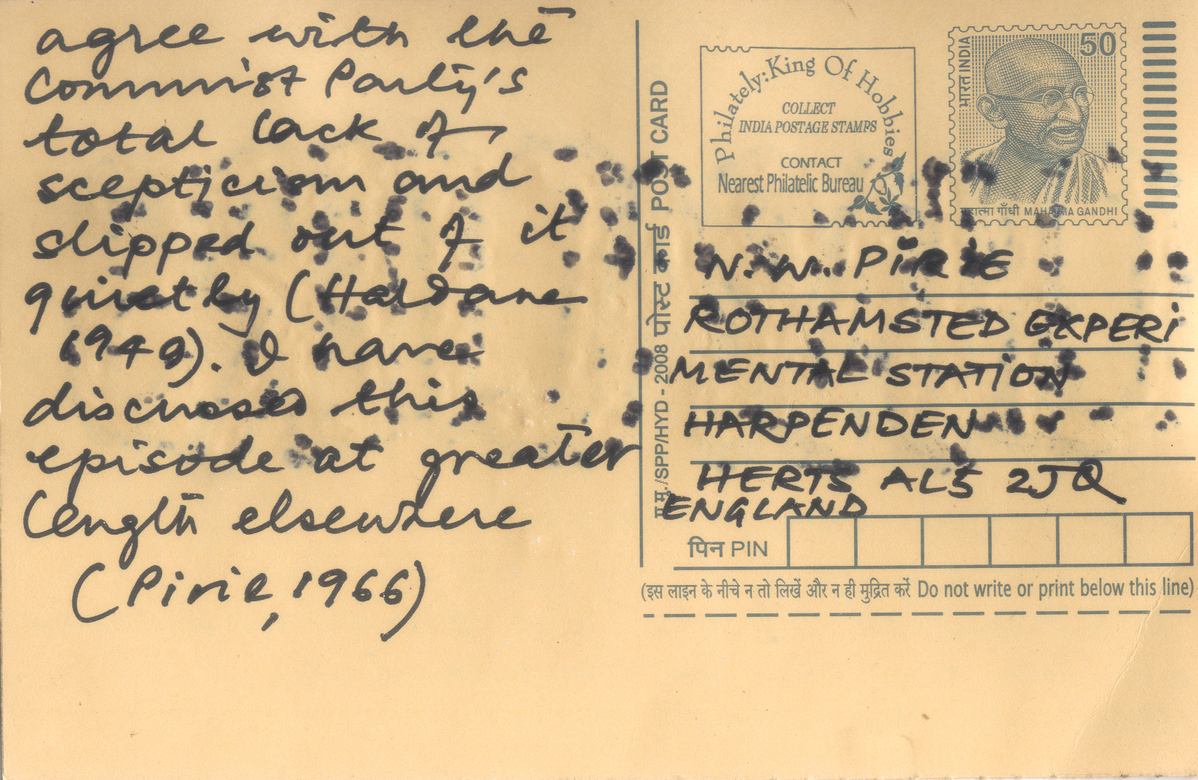 agree with the
Commnist Party's
total lack of
scepticism and
slipped out of it
quietly (Haldane
1949). I have
discussed this
episode at greater
length elsewhere
(Pirie, 1966)
म.प्र./SPP/HYD - 2008 पोस्ट कार्ड POST CARD
Philately: King Of Hobbies
COLLECT
INDIA POSTAGE STAMPS
CONTACT
Nearest Philatelic Bureau
भारत INDIA
50
महात्मा गाँधी MAHATMA GANDHI
N.W. PIRIE
ROTHAMSTED EXPERI
MENTAL STATION
HARPENDEN
HERTS AL5 2JQ
ENGLAND
पिन PIN
(इस लाइन के नीचे न तो लिखें और न ही मुद्रित करें Do not write or print below this line)